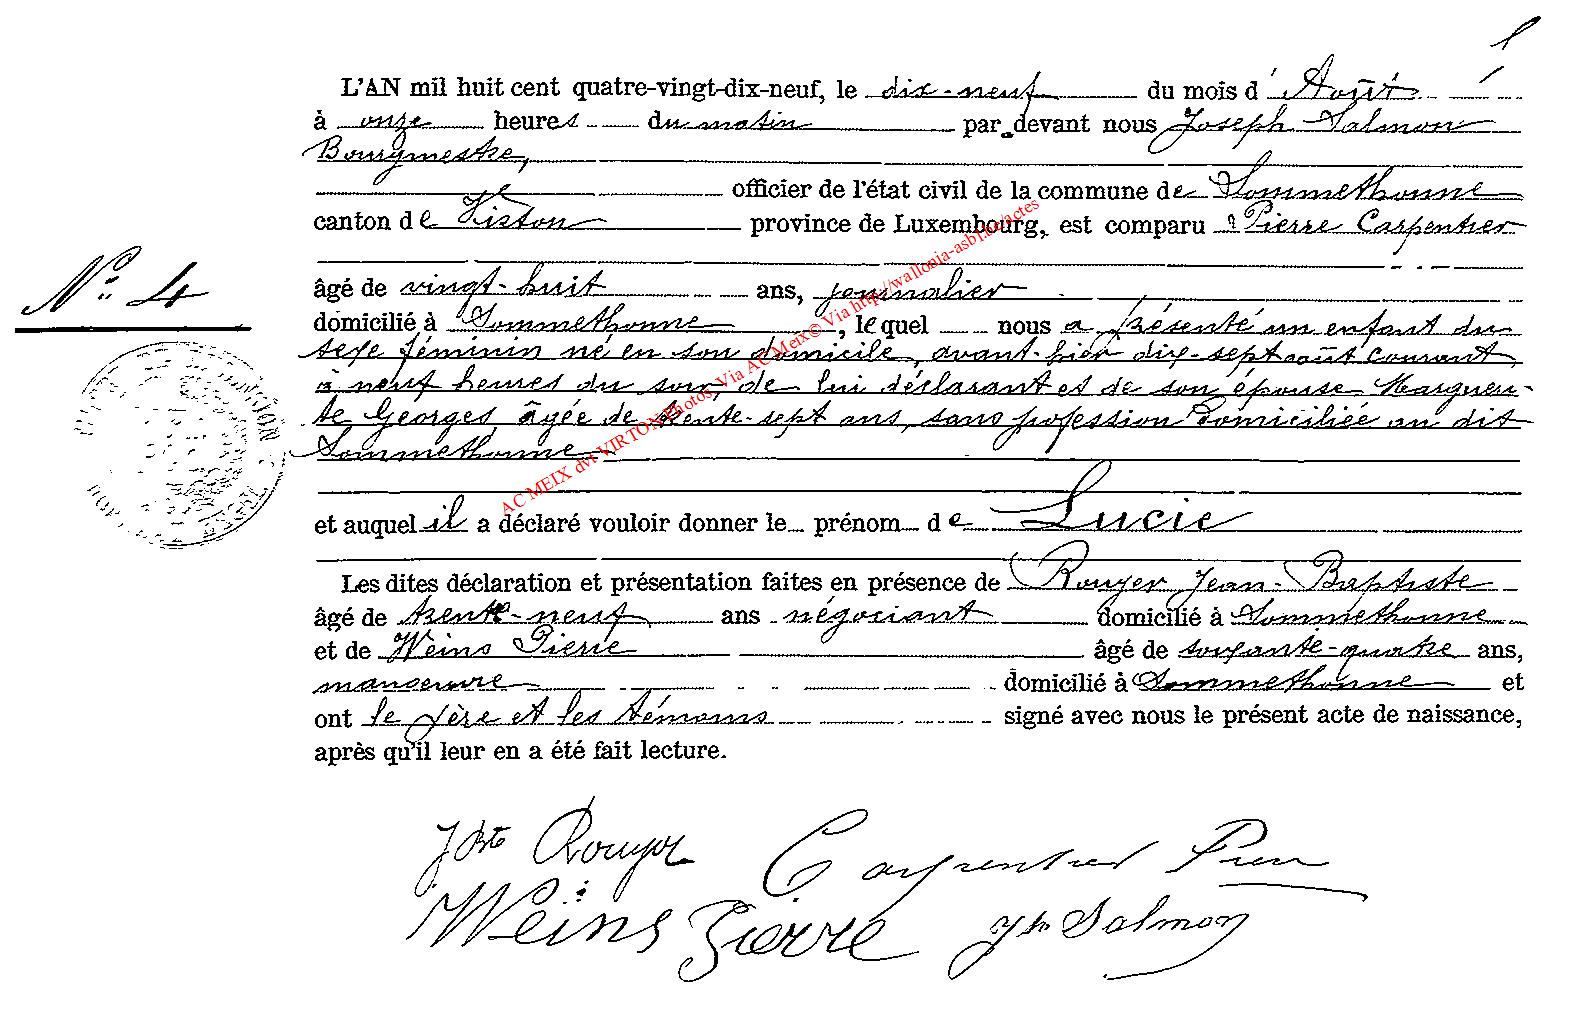 L'AN mil huit cent quatre-vingt-dix-neuf, le dix-neuf du mois d'Août
à onze heures du matin par devant nous Joseph Salmon
Bourgmestre,
officier de l'état civil de la commune de Sommethonne
canton de Virton province de Luxembourg, est comparu Pierre Carpentier
N° 4
âgé de vingt-huit ans, journalier
domicilié à Sommethonne, lequel nous a présenté un enfant du
sexe féminin né en son domicile, avant-hier dix-sept août courant,
à neuf heures du soir, de lui déclarant et de son épouse Margueri-
te Georges, âgée de trente-sept ans, sans profession domiciliée au dit
Sommethonne
et auquel il a déclaré vouloir donner le prénom de Lucie
Les dites déclaration et présentation faites en présence de Rouyer Jean-Baptiste
âgé de trente-neuf ans négociant domicilié à Sommethonne
et de Weins Pierre âgé de soixante-quatre ans,
manoeuvre domicilié à Sommethonne et
ont le père et les témoins signé avec nous le présent acte de naissance,
après qu'il leur en a été fait lecture.
AC MEIX dvt VIRTON Photos Via AC Meix© Via http://wallonia-asbl.be/actes
Jbte Rouyer Carpentier Pierre
Weins Pierre Jh Salmon